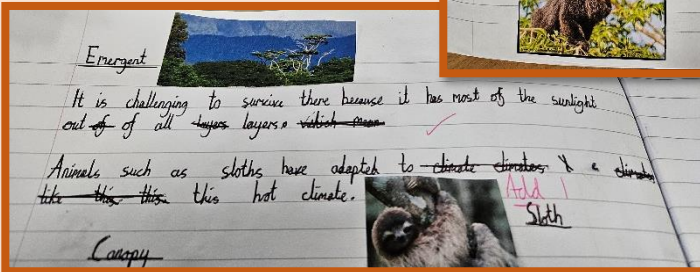 Emergent
It is challenging to survive there because it has most of the sunlight
out of of all layers layers. which mean
Animals such as sloths have adapted to climate climates X a climates
like this this this hot climate.
Add 1
Sloth
Canopy